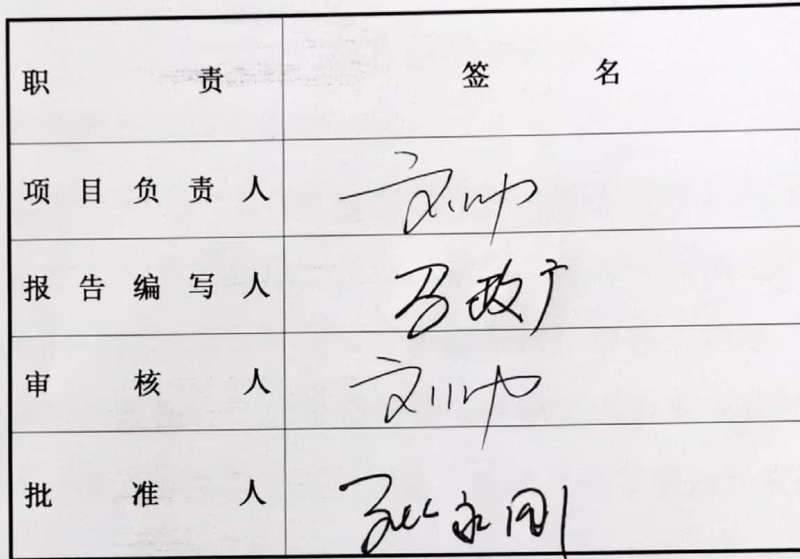 职责 签名
项目负责人 刘帅
报告编写人 马政广
审核人 刘帅
批准人 永刚